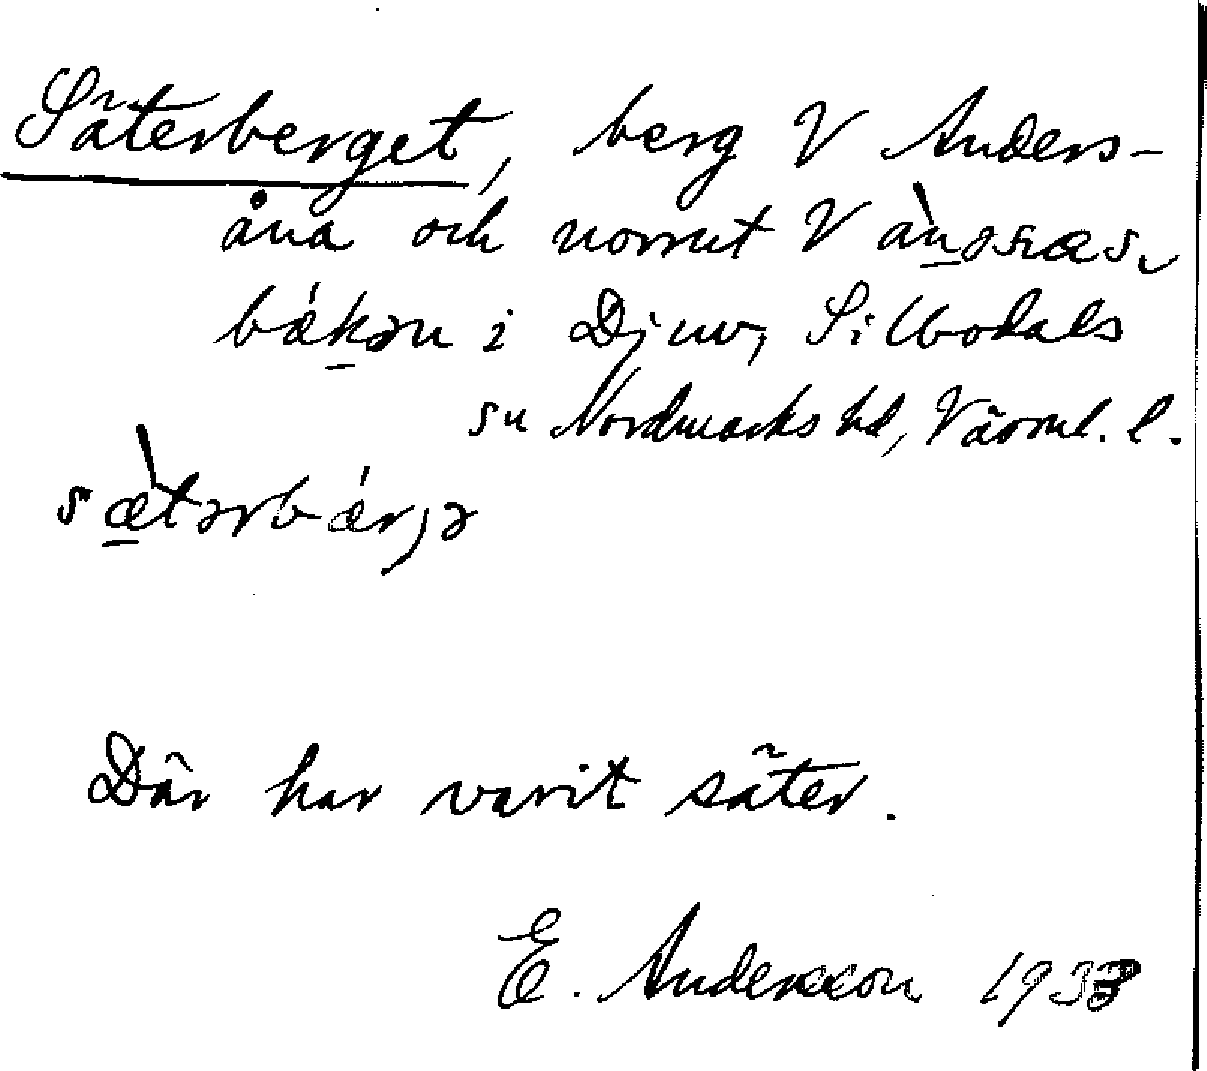 Säterberget, berg V Anders-
åna och norrut V
i Djuv, Sillbodals
sn Nordmarks hd, Värml. l.
sæ̀tərbǽrjə
Där har varit säter.
E. Andersson 1933